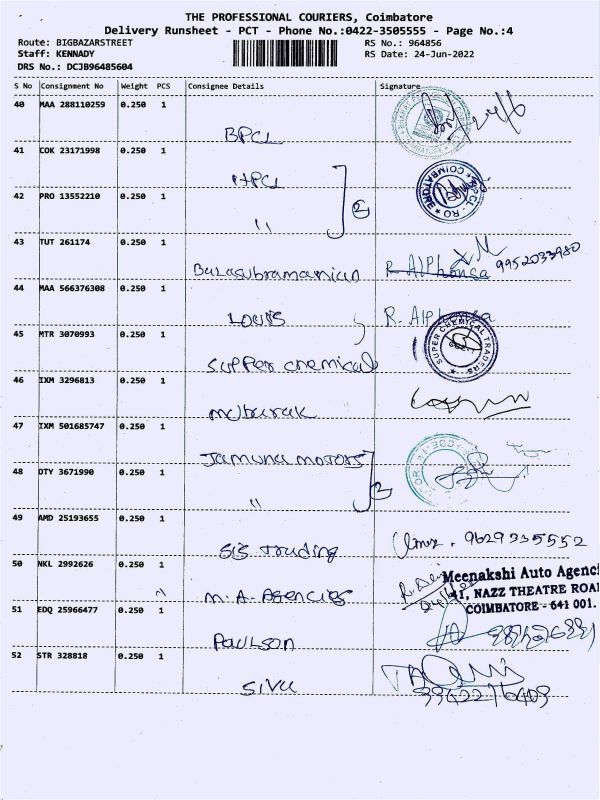 THE PROFESSIONAL COURIERS, Coimbatore
Delivery Runsheet - PCT - Phone No.:0422-3505555 - Page No.:4
Route: BIGBAZARSTREET
RS No.: 964856
Staff: KENNADY
RS Date: 24-Jun-2022
DRS No.: DCJB96485604
S No Consignment No Weight PCS Consignee Details Signature
40 MAA 288110259 0.250 1
BPCL 24/6
41 COK 23171998 0.250 1
HPCL
COIMBATORE
HPCL - RO
42 PRO 13552210 0.250 1
" 2
43 TUT 261174 0.250 1
Balasubramanian R. Alphonsa 9952033980
44 MAA 566376308 0.250 1
Louis R. Alphonsa
45 MTR 3070993 0.250 1
Supper chemical
SUPER CHEMICAL TRADERS
46 IXM 3296813 0.250 1
Mubarak
47 IXM 501685747 0.250 1
Jamuna motors
48 DTY 3671990 0.250 1
" 2
49 AMD 25193655 0.250 1
SIS Trading 9629335552
50 NKL 2992626 0.250 1
M.A. Agencies
Meenakshi Auto Agenci
41, NAZZ THEATRE ROA
COIMBATORE - 641 001.
51 EDQ 25966477 0.250 1
Paulson
52 STR 328818 0.250 1
Siva